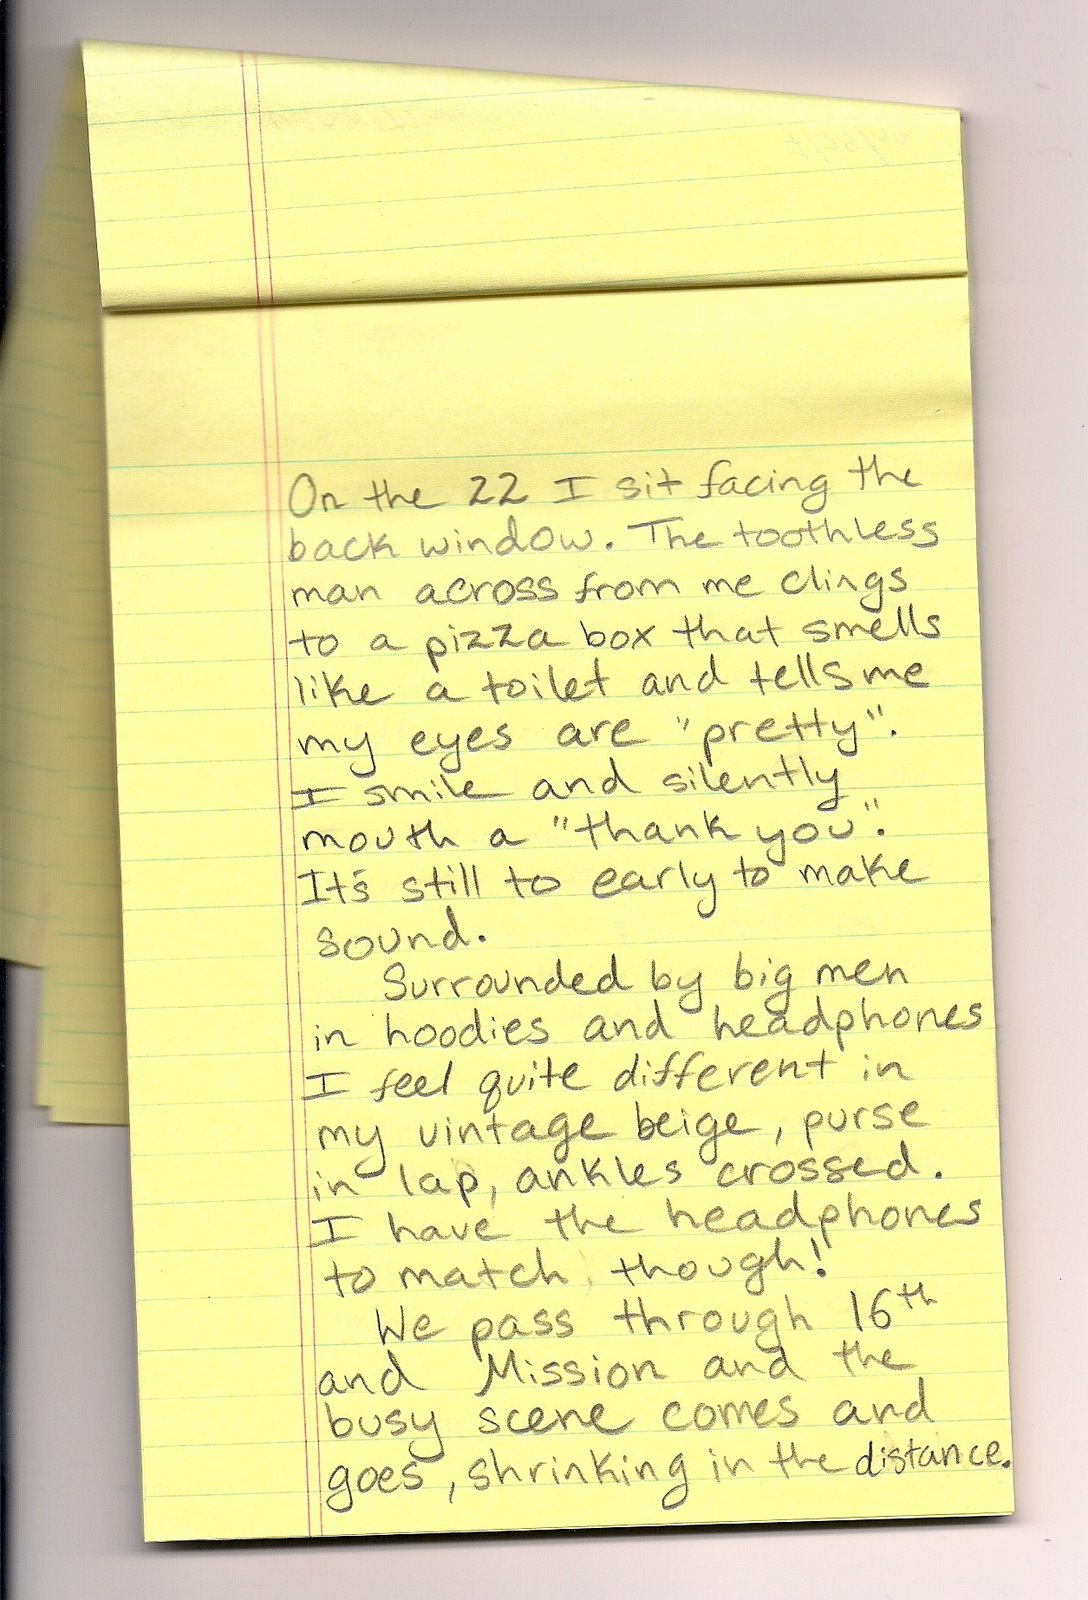 On the 22 I sit facing the
back window. The toothless
man across from me clings
to a pizza box that smells
like a toilet and tells me
my eyes are "pretty".
I smile and silently
mouth a "thank you".
It's still to early to make
sound.
Surrounded by big men
in hoodies and headphones
I feel quite different in
my vintage beige, purse
in lap, ankles crossed.
I have the headphones
to match though!
We pass through 16th
and Mission and the
busy scene comes and
goes, shrinking in the distance.